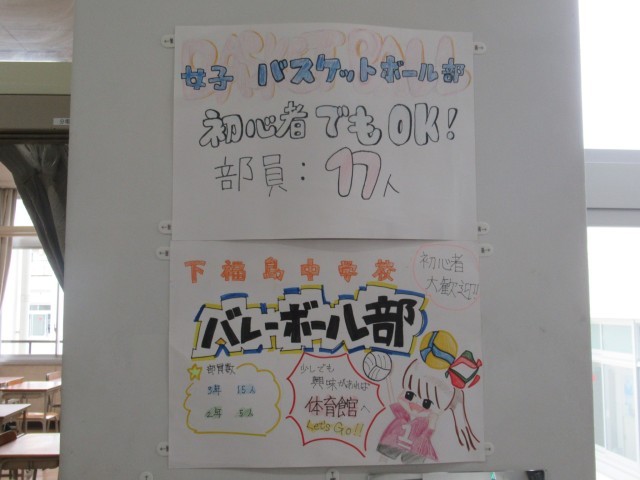 BASKET BALL
女子 バスケットボール部
初心者でもOK!
部員：17人
下福島中学校
初心者
大歓迎!!
バレーボール部
部員数
3年 15人
2年 5人
少しでも
興味があれば
体育館へ
Let's Go!!
1